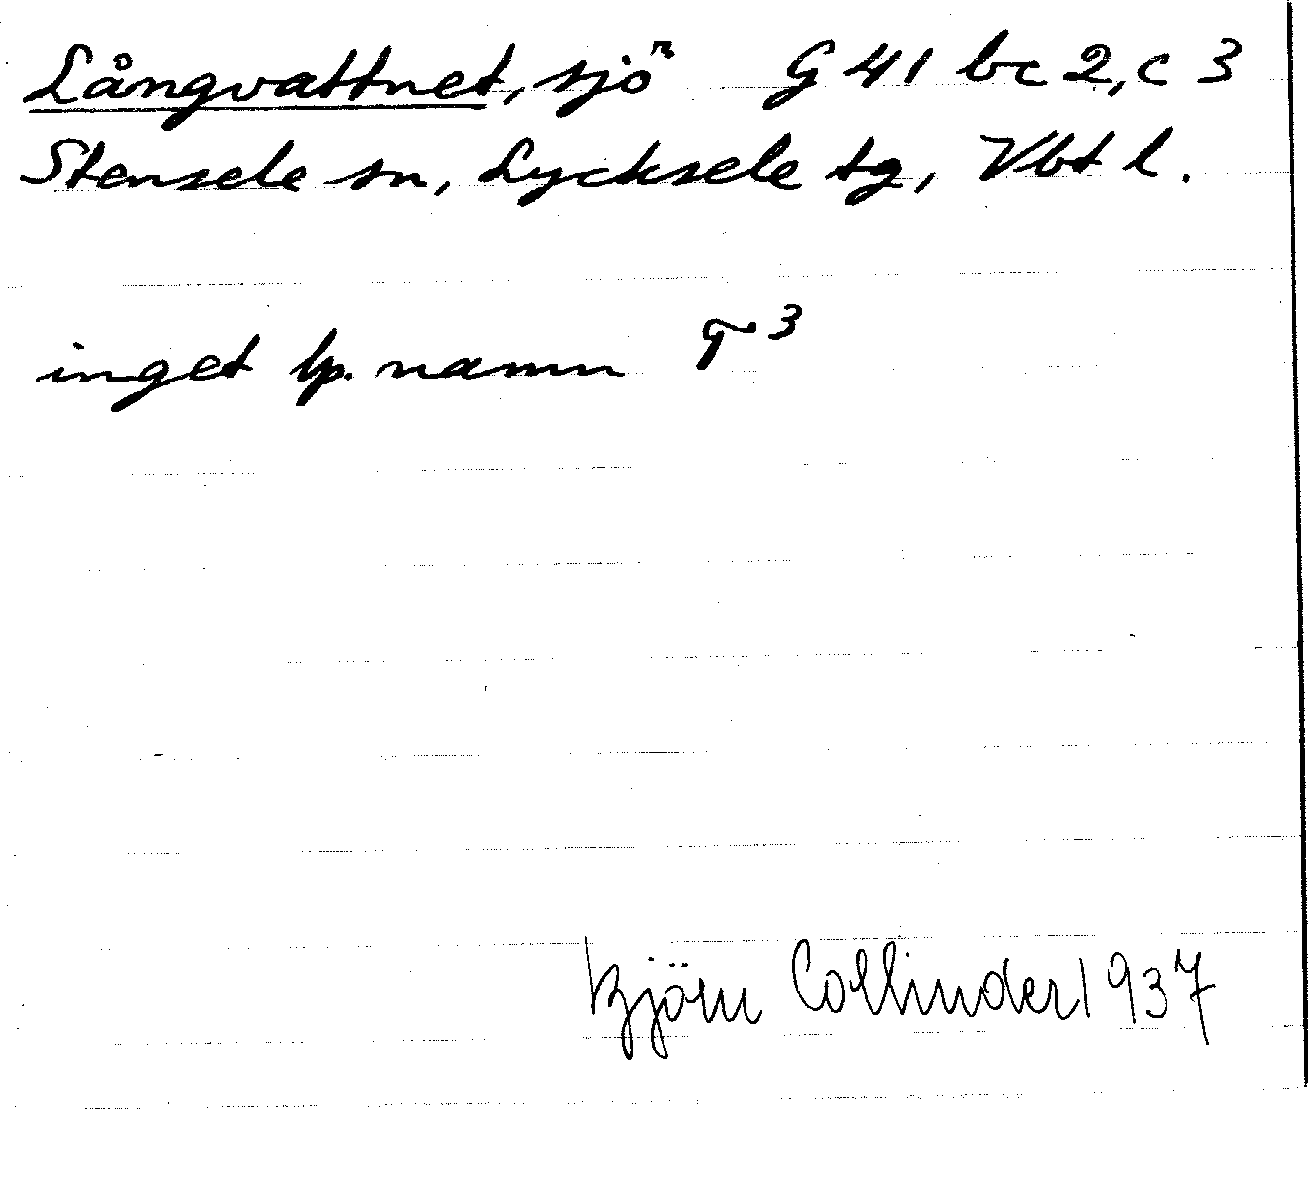 Långvattnet, sjö G 41 bc 2, c 3
Stensele sn, Lycksele tg, Vbt l.
inget lp. namn T³
Björn Collinder 1937